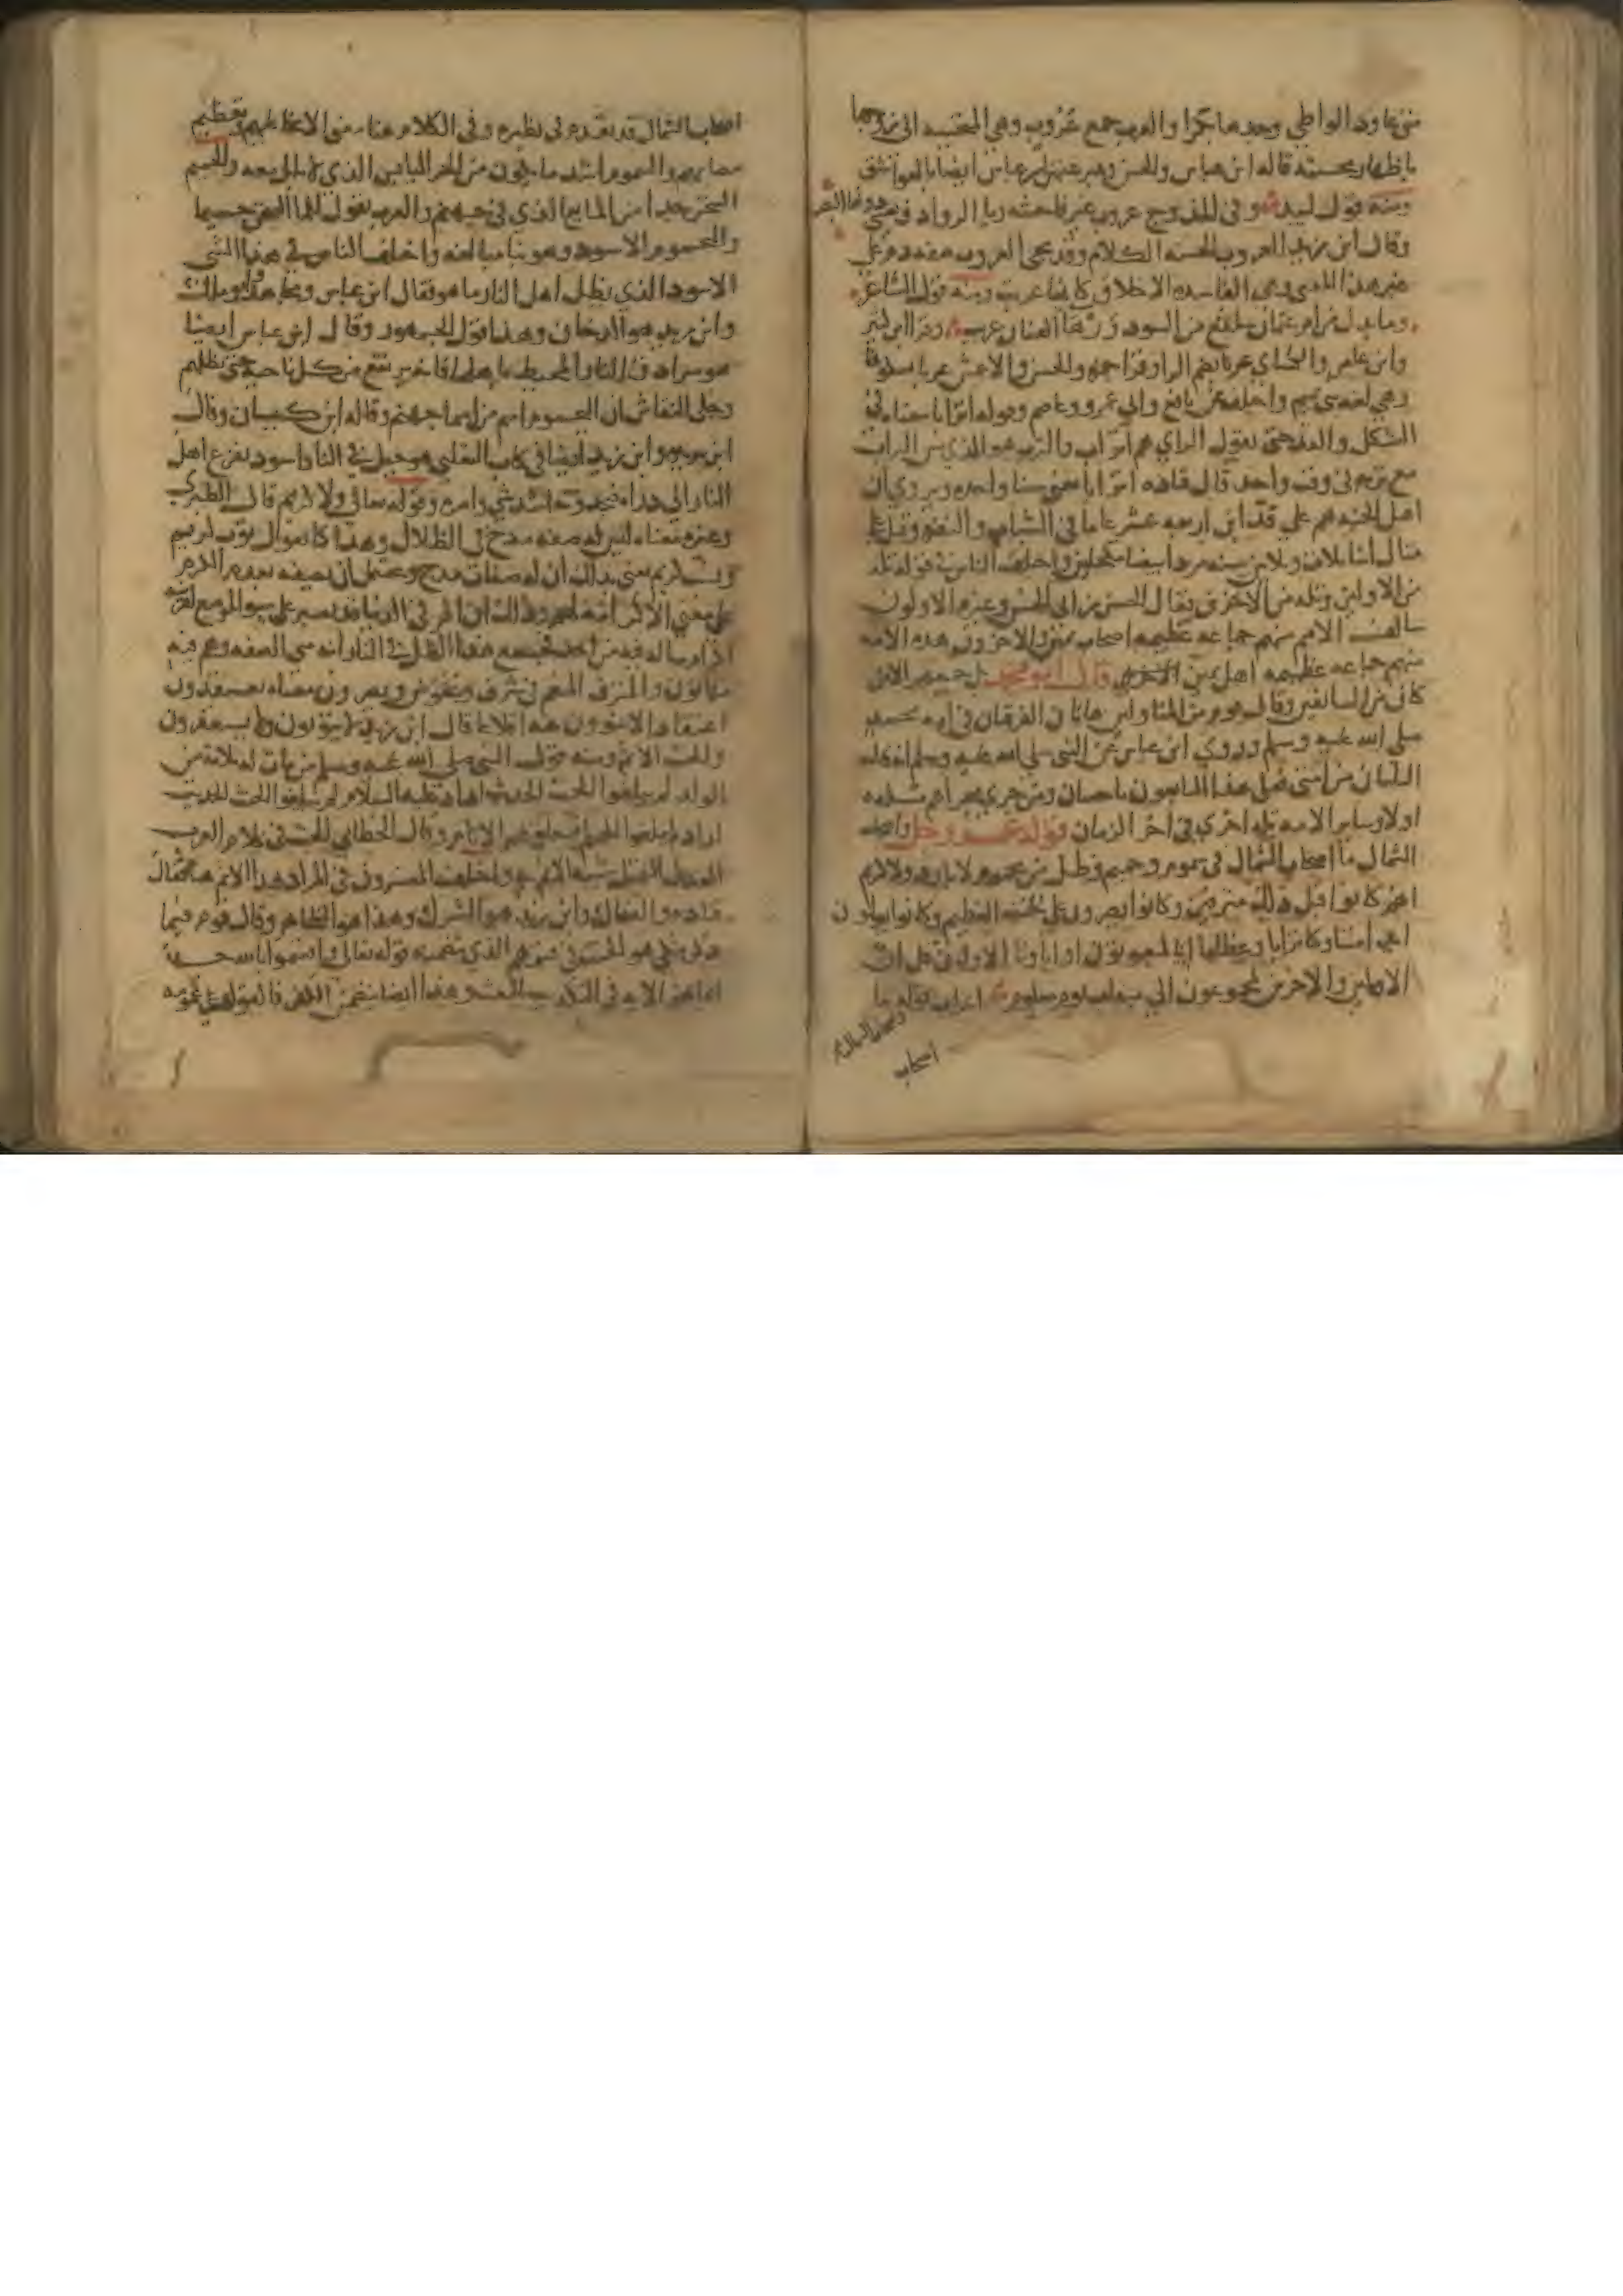 متى عاود الواطي وجدها بكرا والعرب جمع عروب وهي المتحببة الى زوجها
باظهار محبته قاله ابن عباس والحسن وعبر عنهن ابن عباس ايضا بالعواشق
ومنه قول لبيد وفي الحدوج عروب غير فاحشة ريا الروادف يعشى دونها البصر
وقال ابن زيد العروب الحسنة الكلام وقد تجي العروب صفة ذم على
غير هذا المعنى وهي الفاسدة الاخلاق كانها عربت ومنه قول الشاعر
وما بدل من ام عثمان سلفع من السود ورها العنان عروب وقرا ابن كثير
وابن عامر والكساي عربا بضم الرا وقرا حمزة والحسن والاعمش عربا بسكونها
وهي لغة بني تميم واختلف عن نافع وابي عمرو وعاصم وقوله اترابا معناه في
الشكل والقد حتى يقول الراي هم اتراب والترب هو الذي مس التراب
مع تربه في وقت واحد قال قتادة اترابا يعني سنا واحدة ويروى ان
اهل الجنة هم على قد ابن اربعة عشر عاما في الشباب والنضرة وقيل على
مثال ابنا ثلاث وثلاثين سنة مردا بيضا مكحلين واختلف الناس في قوله ثلة
من الاولين وثلة من الاخرين فقال الحسن بن ابي الحسن وغيره الاولون
سالف الامم منهم جماعة عظيمة اصحاب يمين والاخرون هذه الامة
منهم جماعة عظيمة اهل يمين قال ابو محمد بل جميعهم الا من
كان من السابقين وقال قوم من المتاولين هاتان الفرقتان في امة محمد
صلى الله عليه وسلم وروى ابن عباس عن النبي صلى الله عليه وسلم انه قال
الثلتان من امتي فعلى هذا التابعون باحسان ومن جرى مجراهم ثلة
اولى وساير الامة ثلة اخرى في اخر الزمان قوله عز وجل واصحاب
الشمال ما اصحاب الشمال في سموم وحميم وظل من يحموم لا بارد ولا كريم
انهم كانوا قبل ذلك مترفين وكانوا يصرون على الحنث العظيم وكانوا يقولون
ايذا متنا وكنا ترابا وعظاما اينا لمبعوثون او اباونا الاولون قل ان
الاولين والاخرين لمجموعون الى ميقات يوم معلوم اعراب قوله ما
اصحاب
اصحاب الشمال قد تقدم في نظيره وفي الكلام هنا معنى الانحا عليهم وتعظيم
مصابهم والسموم اشد ما يكون من الحر اليابس الذي لا بلل معه والحميم
السخن جدا من الما الذي في جهنم والعرب تقول للما السخن حميما
واليحموم الاسود وهو بنا مبالغة واختلف الناس في هذا الشي
الاسود الذي يظل اهل النار ما هو فقال ابن عباس ومجاهد وابو مالك
وابن زيد هو الدخان وهذا قول الجمهور وقال ابن عباس ايضا
هو سرادق النار المحيط باهلها فانه يرتفع من كل ناحية حتى يظلهم
وحكى النقاش ان اليحموم اسم من اسما جهنم وقاله ابن كيسان وقال
ابن بريدة وابن زيد ايضا في كتاب الثعلبي هو جبل في النار اسود يفزع اهل
النار الى ذراه فيجدونه اشد شي وامره وقوله تعالى ولا كريم قال الطبري
وغيره معناه ليس له صفة مدح في الظلال وهذا كما تقول ثوب كريم
ونسب كريم يعني بذلك ان له صفات مدح ويحتمل ان يصفه بعدم الكرم
على معنى الا كرامة لهم وذلك ان المر في الدنيا قد يصبر على سو الموضع لقرينة
اكرام يناله فيه من احد فجمع هذا الظل في النار انه سي الصفة وهم فيه
مهانون والمترف المنعم في سرف وتخوض ويصرون معناه يعتقدون
اعتقادا لا ينوون عنه اقلاعا قال ابن زيد لا يتوبون ولا يستغفرون
والحنث الاثم ومنه قول النبي صلى الله عليه وسلم من مات له ثلاثة من
الولد لم يبلغوا الحنث الحديث اراد عليه السلام لم يبلغوا الحنث الحديث
اراد لم يبلغوا الحلم فتعلق بهم الاثام وقال الخطابي الحنث في كلام العرب
العدل الثقيل شبه الاثم به واختلف المفسرون في المراد بهذا الاثم هنا فقال
قتادة والضحاك وابن زيد هو الشرك وهذا هو الظاهر وقال قوم فيما
ذكر مكي هو الحنث في قسمهم الذي يتضمنه قوله تعالى واقسموا بالله جهد
ايمانهم الاية في التكذيب بالبعث وهذا ايضا يتضمن الكفر فالقول به على عمومه